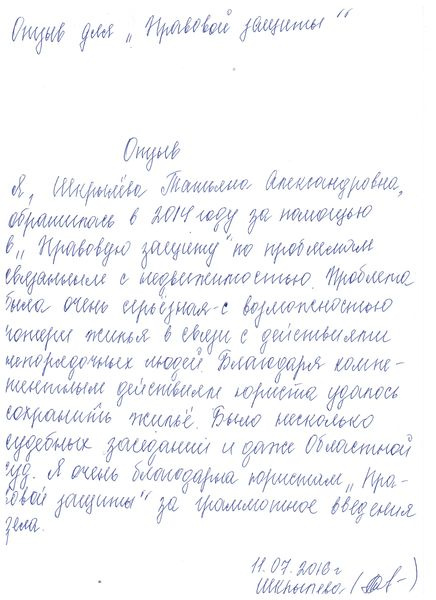 Отзыв для „Правовой защиты“
Отзыв
Я, Шкрылёва Татьяна Александровна,
обратилась в 2014 году за помощью
в „Правовую защиту“ по проблемам
связанным с недвижимостью. Проблема
была очень серьёзная - с возможностью
потери жилья в связи с действиями
непорядочных людей. Благодаря компе-
тентным действиям юриста удалось
сохранить жильё. Было несколько
судебных заседаний и даже Областной
суд. Я очень благодарна юристам „Пра-
вовой защиты“ за граммотное введения
дела.
11.07.2016 г
Шкрылева (